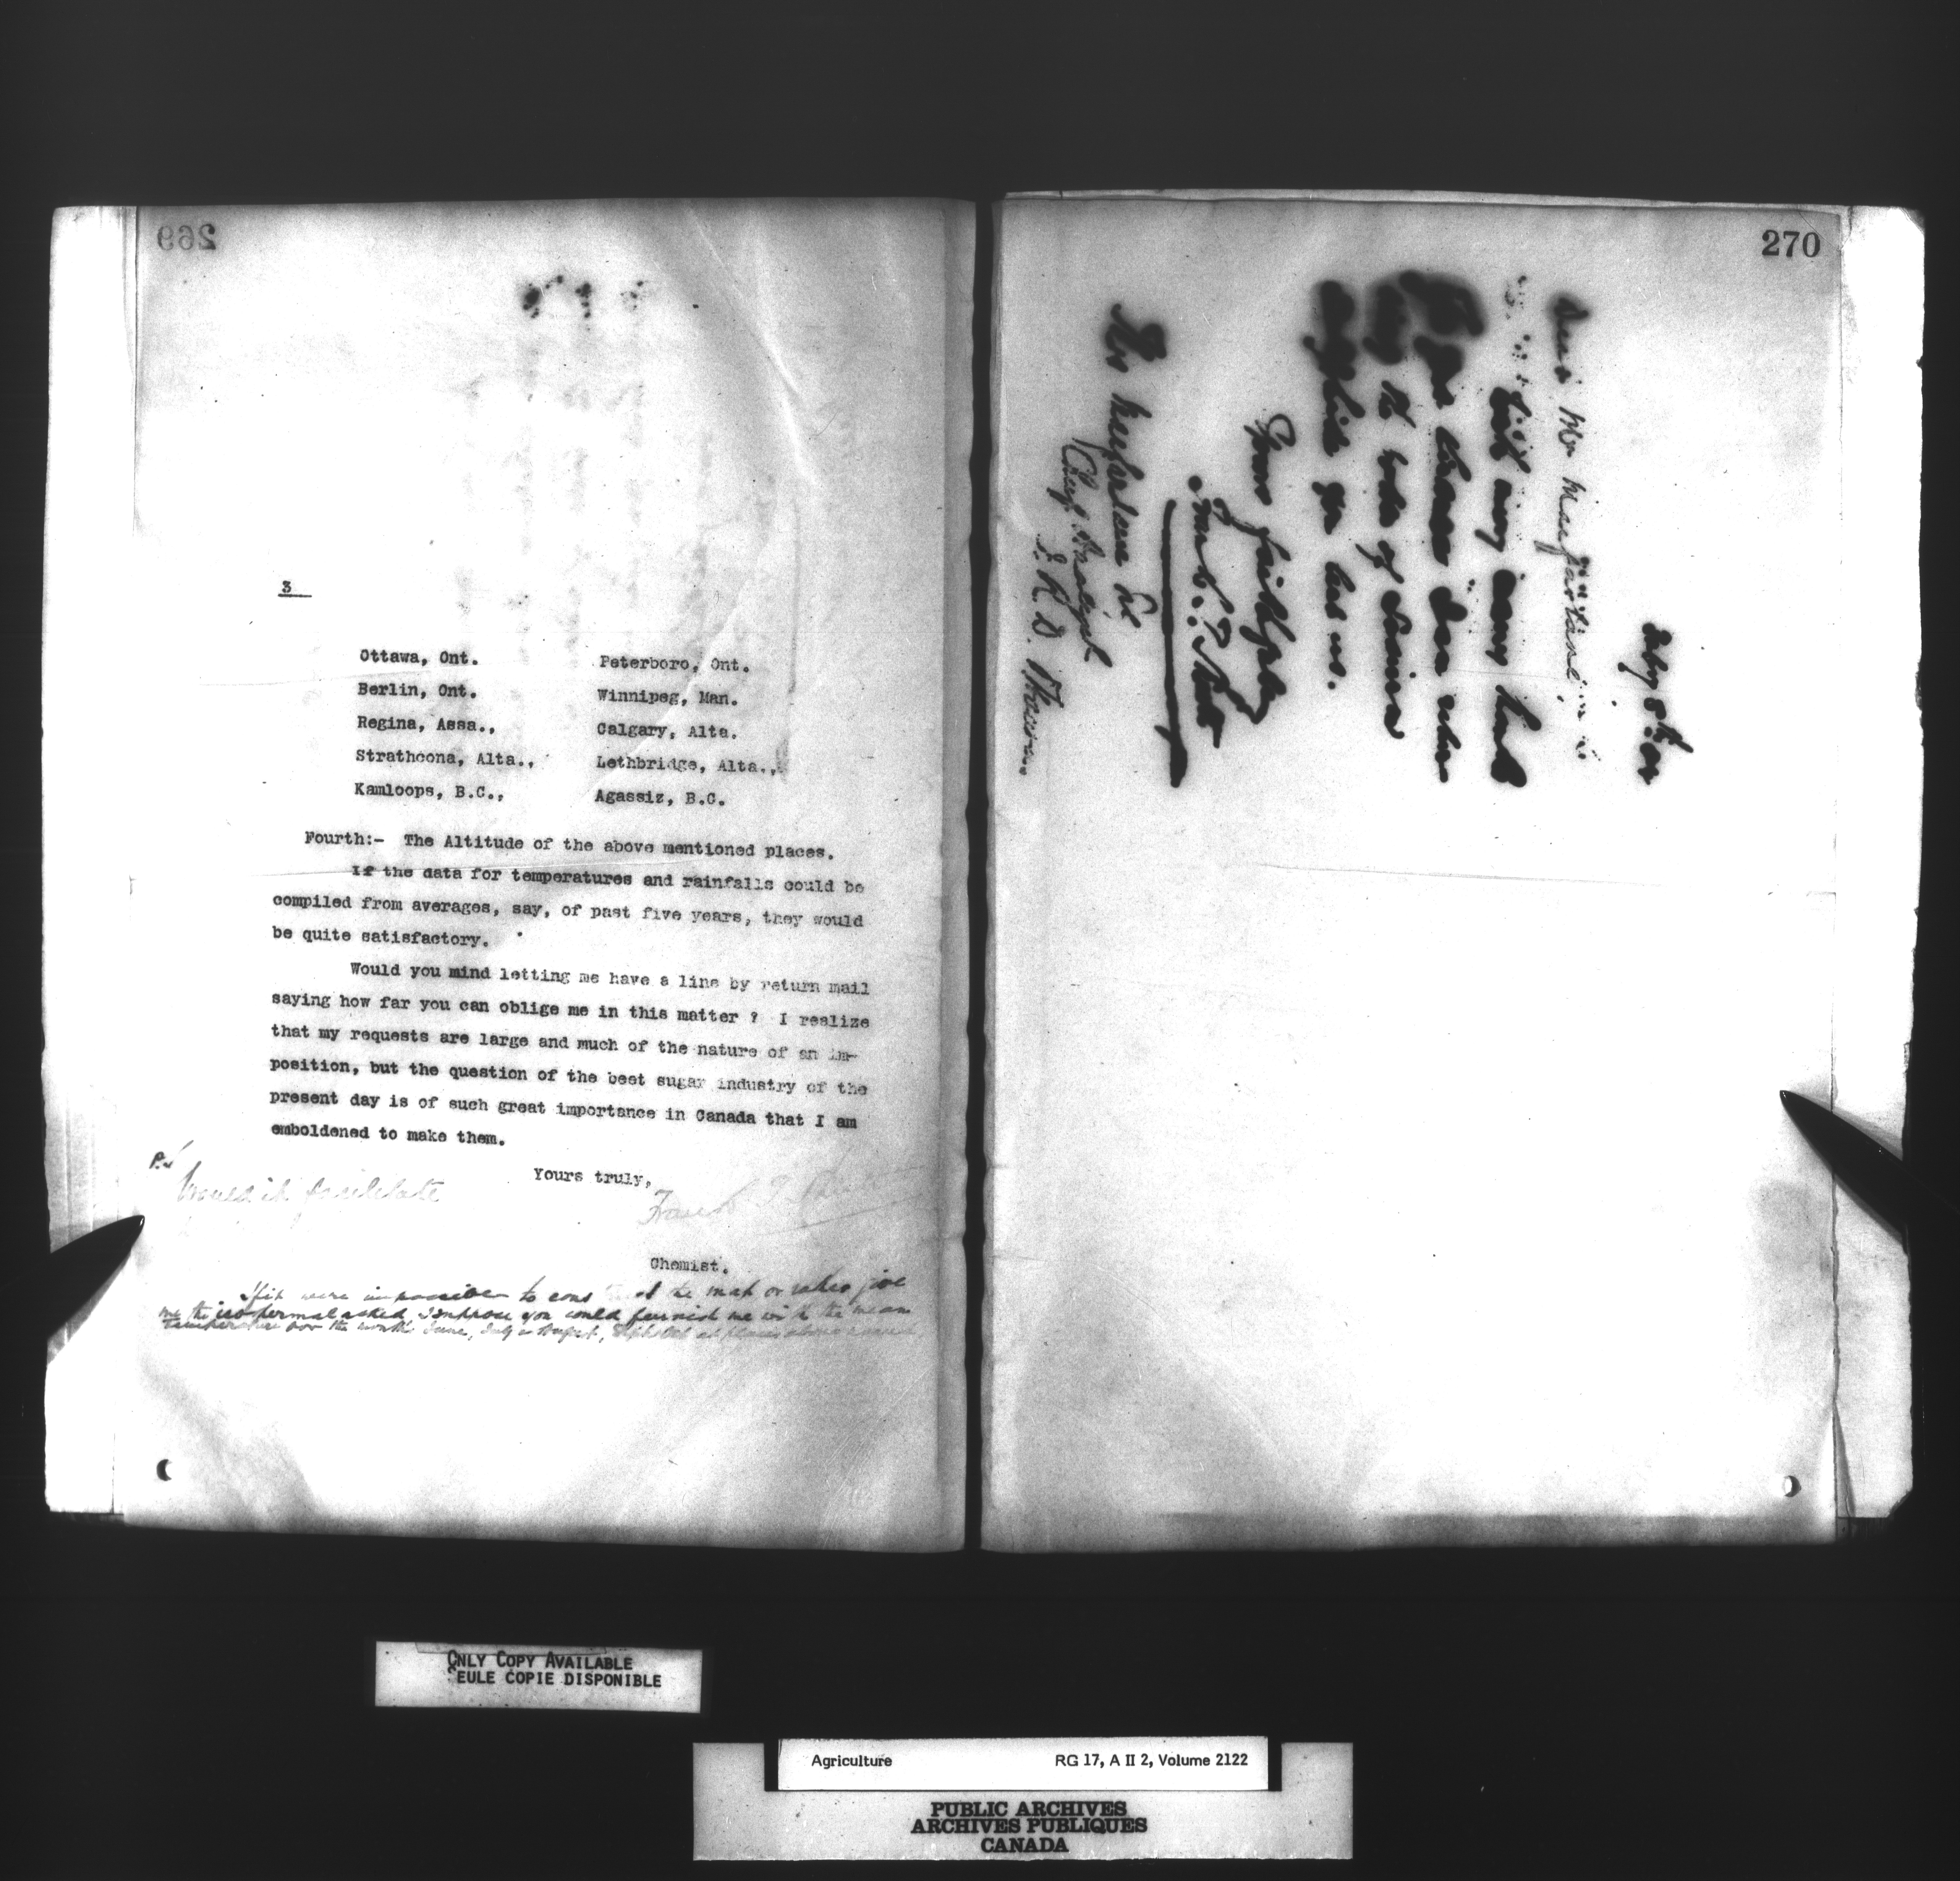 269
3
Ottawa, Ont. Peterboro, Ont.
Berlin, Ont. Winnipeg, Man.
Regina, Assa., Calgary, Alta.
Strathcona, Alta., Lethbridge, Alta.,
Kamloops, B.C., Agassiz, B.C.
Fourth:- The Altitude of the above mentioned places.
If the data for temperatures and rainfalls could be
compiled from averages, say, of past five years, they would
be quite satisfactory.
Would you mind letting me have a line by return mail
saying how far you can oblige me in this matter ? I realize
that my requests are large and much of the nature of an im-
position, but the question of the beet sugar industry of the
present day is of such great importance in Canada that I am
emboldened to make them.
Yours truly,
Frank T
Chemist.
P.S
Would it facilitate
If it were impossible to the map or give
me the isothermal asked I suppose you could furnish me with the mean
temperature for the month June, July August, at places above named
270
Dear Mr Macfarlane,
many
you
the of
you has us.
Yours faithfully
Frank T Shutt
Macfarlane
Chief Analyst
I. R. D. Ottawa
ONLY COPY AVAILABLE
SEULE COPIE DISPONIBLE
Agriculture RG 17, A II 2, Volume 2122
PUBLIC ARCHIVES
ARCHIVES PUBLIQUES
CANADA